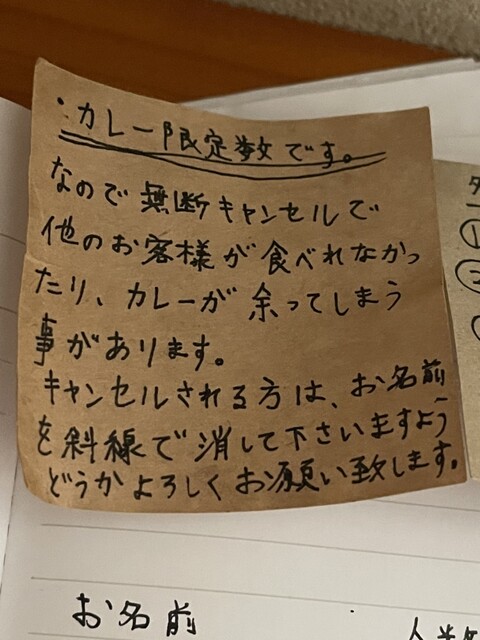 ・カレー限定数です。
なので無断キャンセルで
他のお客様が食べれなかっ
たり、カレーが余ってしまう
事があります。
キャンセルされる方は、お名前
を斜線で消して下さいますよう
どうかよろしくお願い致します。
①
②
お名前
人数